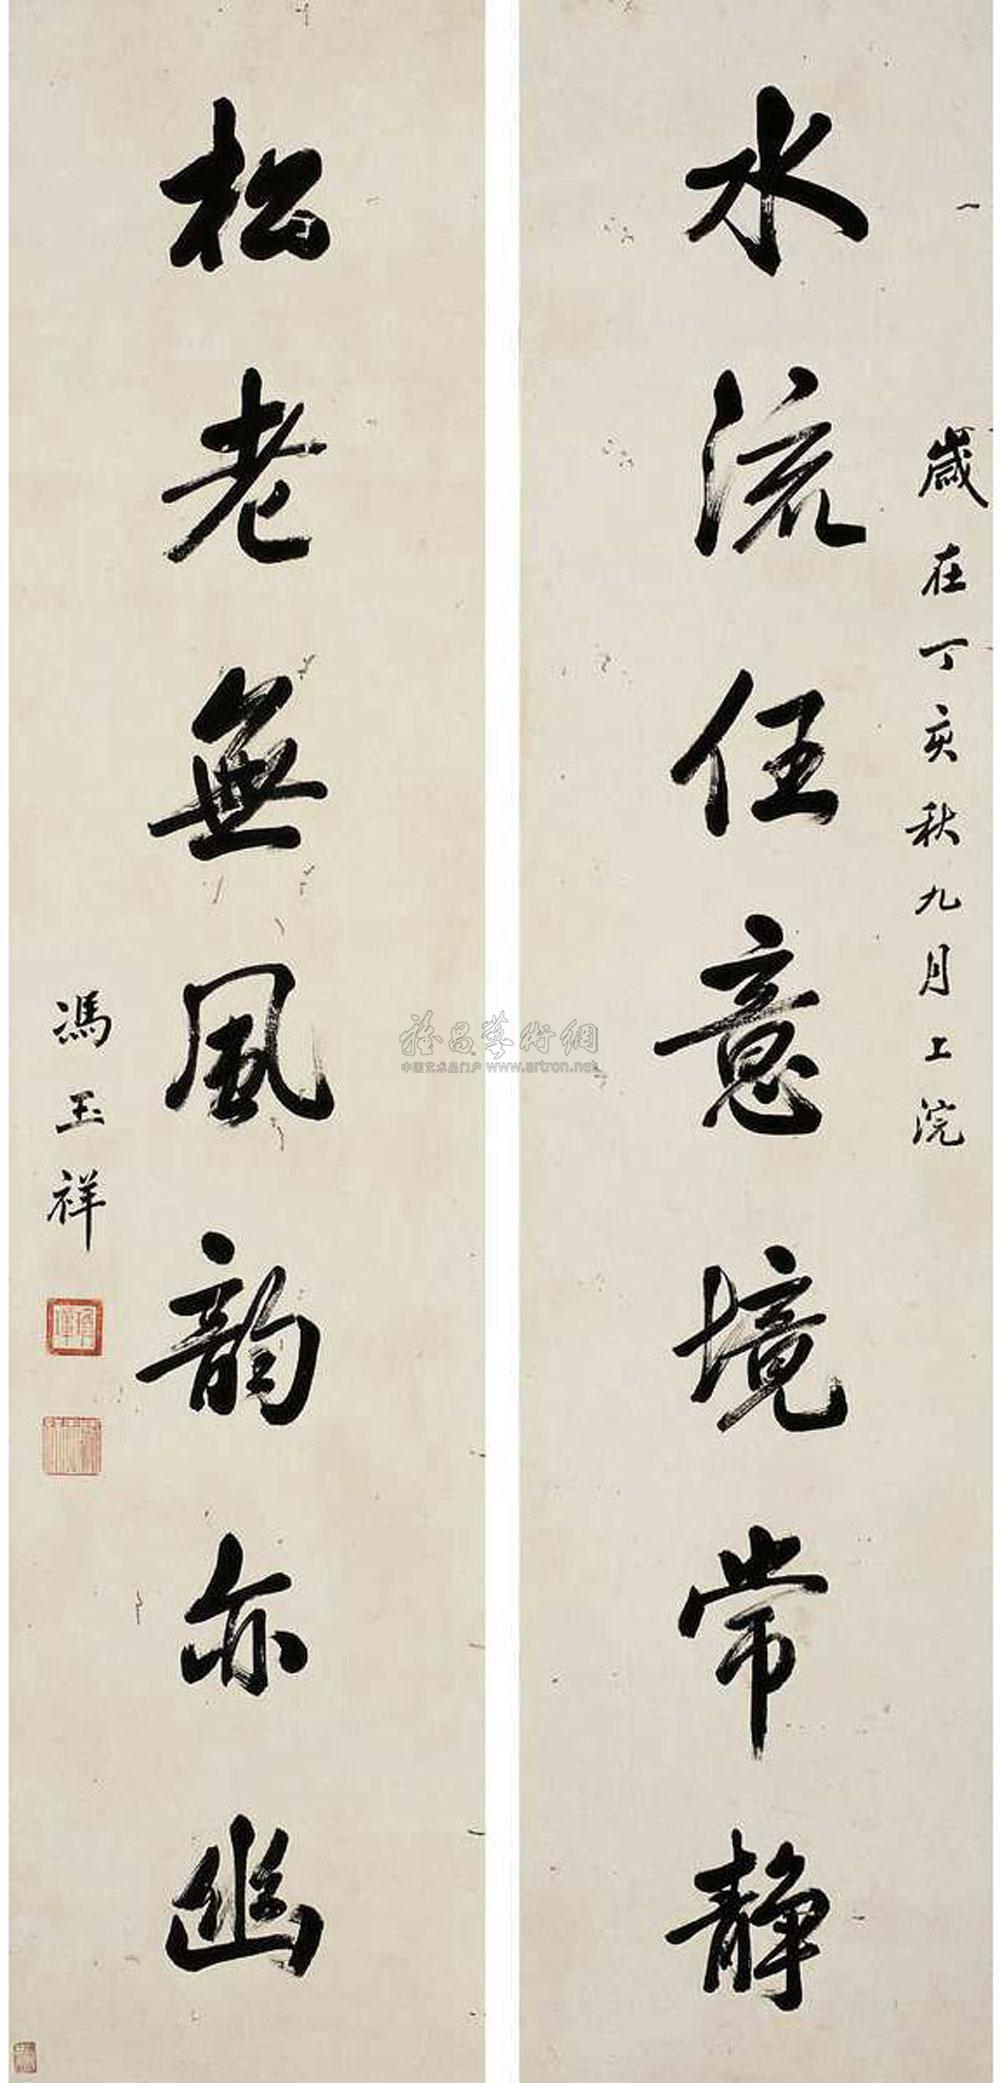 歲在丁亥秋九月上浣
水流任意境常靜
松老無風韵亦幽
馮玉祥
雅昌藝術網
中国艺术品门户 www.artron.net